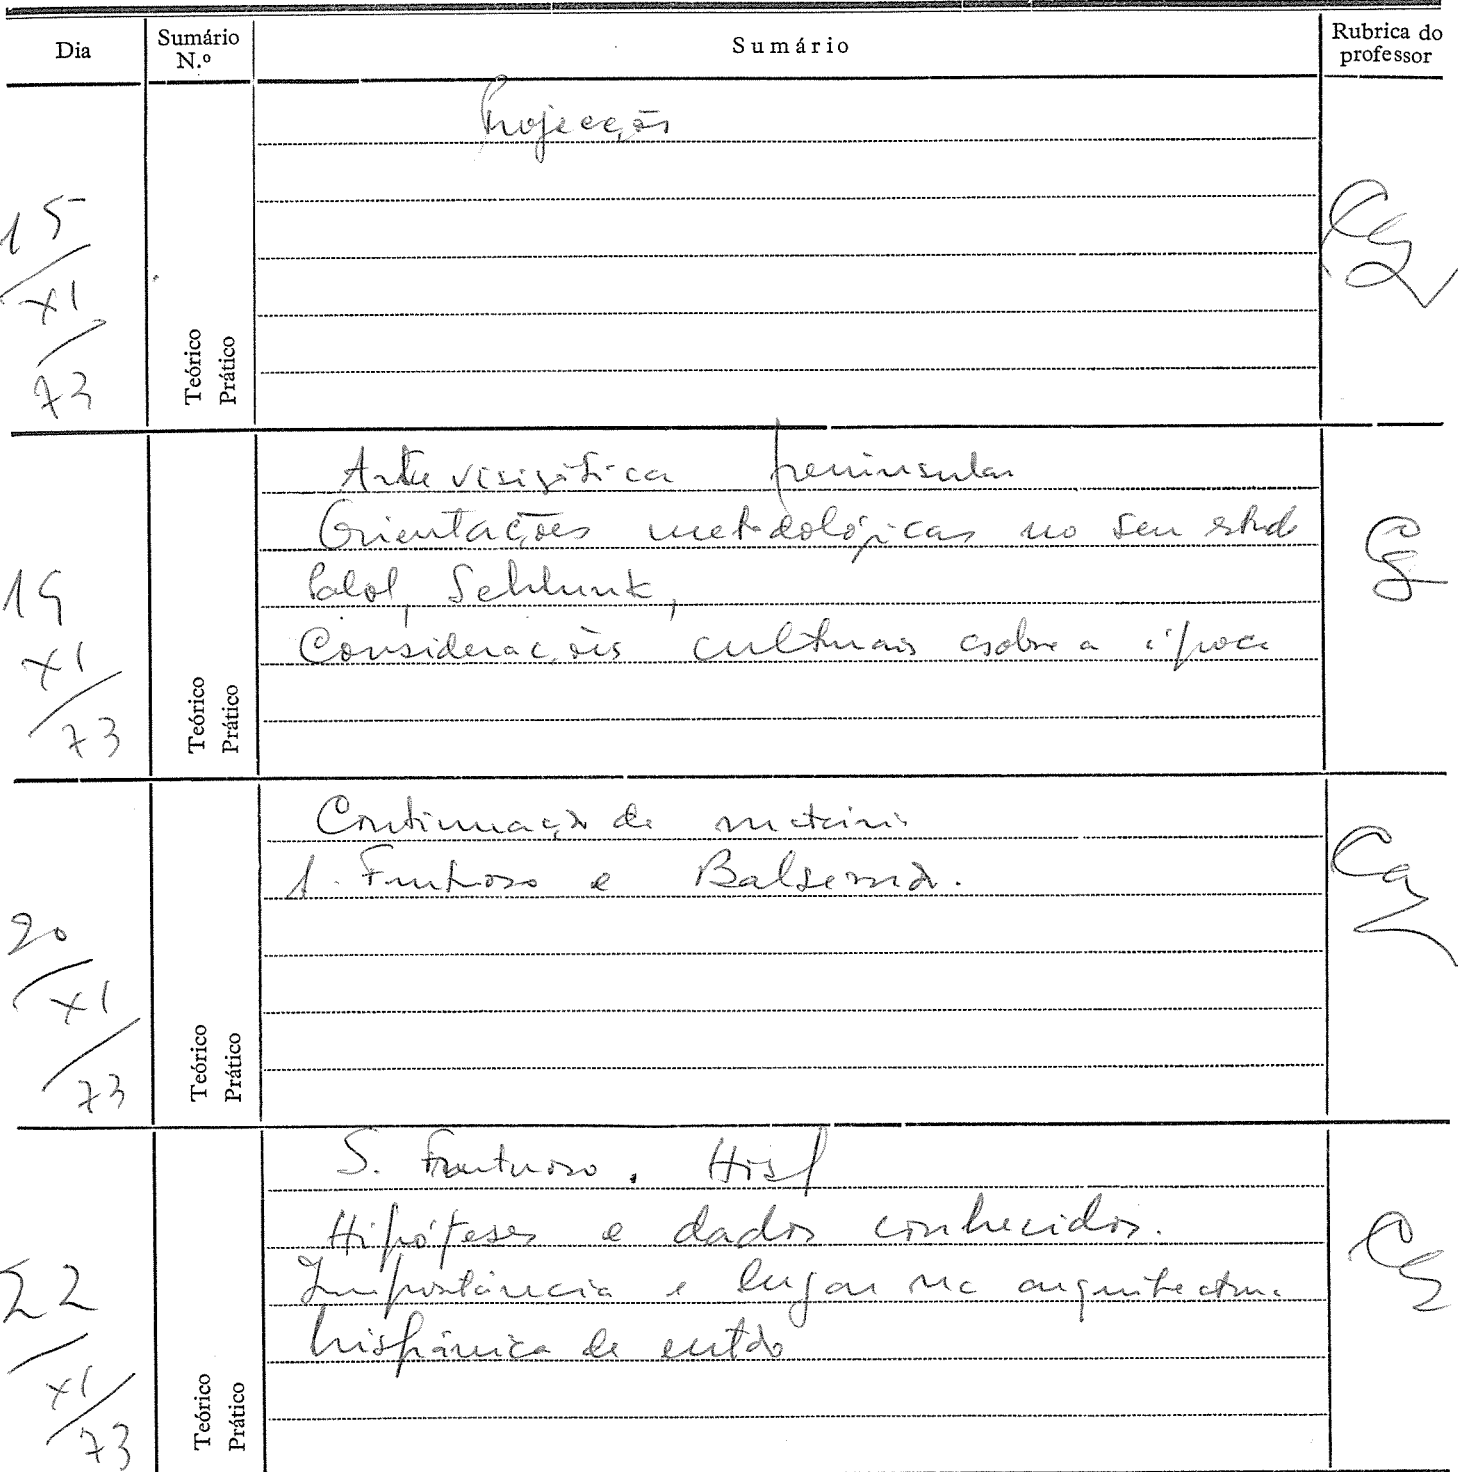 Dia
Sumário N.º
Sumário
Rubrica do professor
15/XI/73
Teórico
Prático
Projecções
19/XI/73
Teórico
Prático
Arte visigótica peninsular
Orientações metodológicas no seu estudo
Palol, Schlunk,
Considerações culturais sobre a época
20/XI/73
Teórico
Prático
Continuação da matéria
S. Frutuoso e Balsemão.
22/XI/73
Teórico
Prático
S. Frutuoso. Hist
Hipóteses e dados conhecidos.
Importância e lugar na arquitectura
hispânica de então